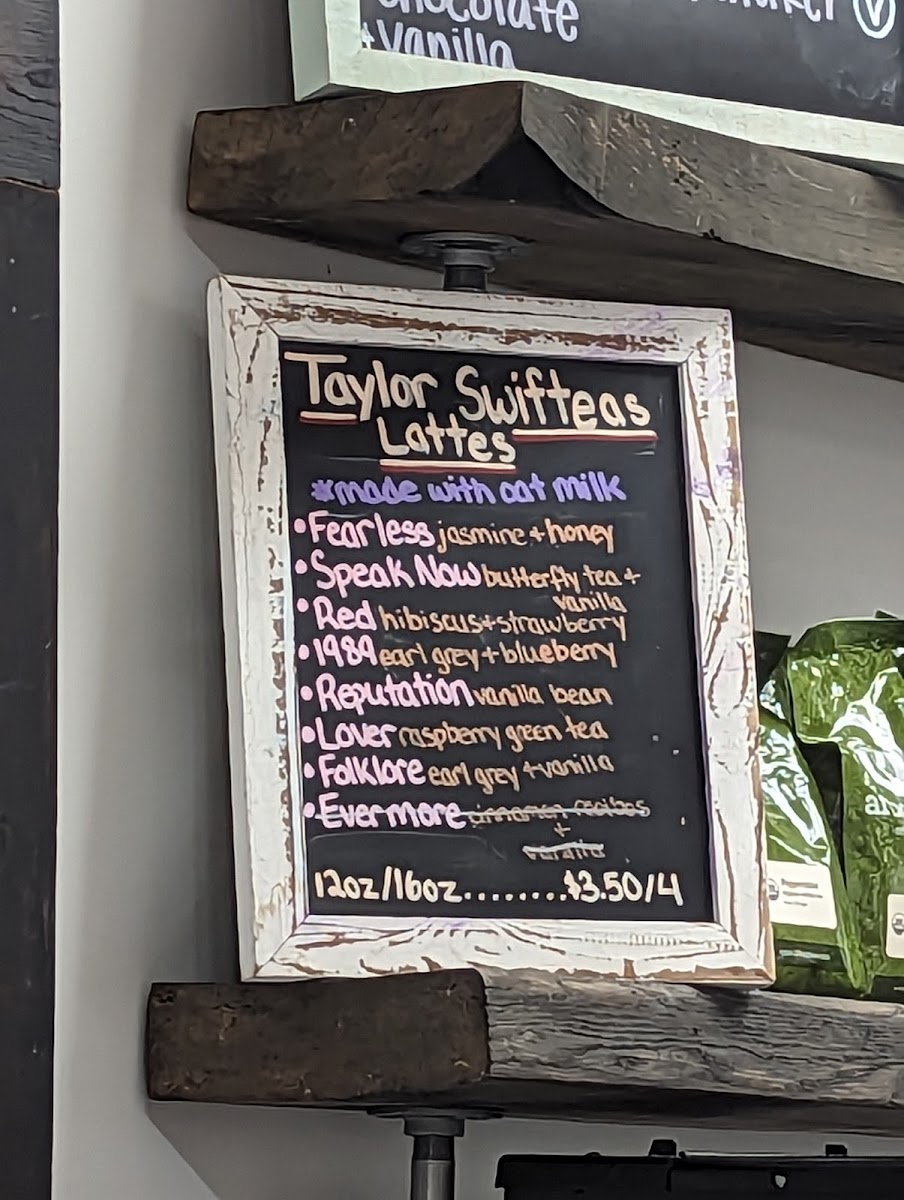 chocolate
+vanilla
Taylor Swifteas
Lattes
*made with oat milk
•Fearless jasmine + honey
•Speak Now butterfly tea +
vanilla
•Red hibiscus + strawberry
•1989 earl grey + blueberry
•Reputation vanilla bean
•Lover raspberry green tea
•Folklore earl grey + vanilla
•Evermore cinnamon rooibos
+
vanilla
12oz/16oz........$3.50/4